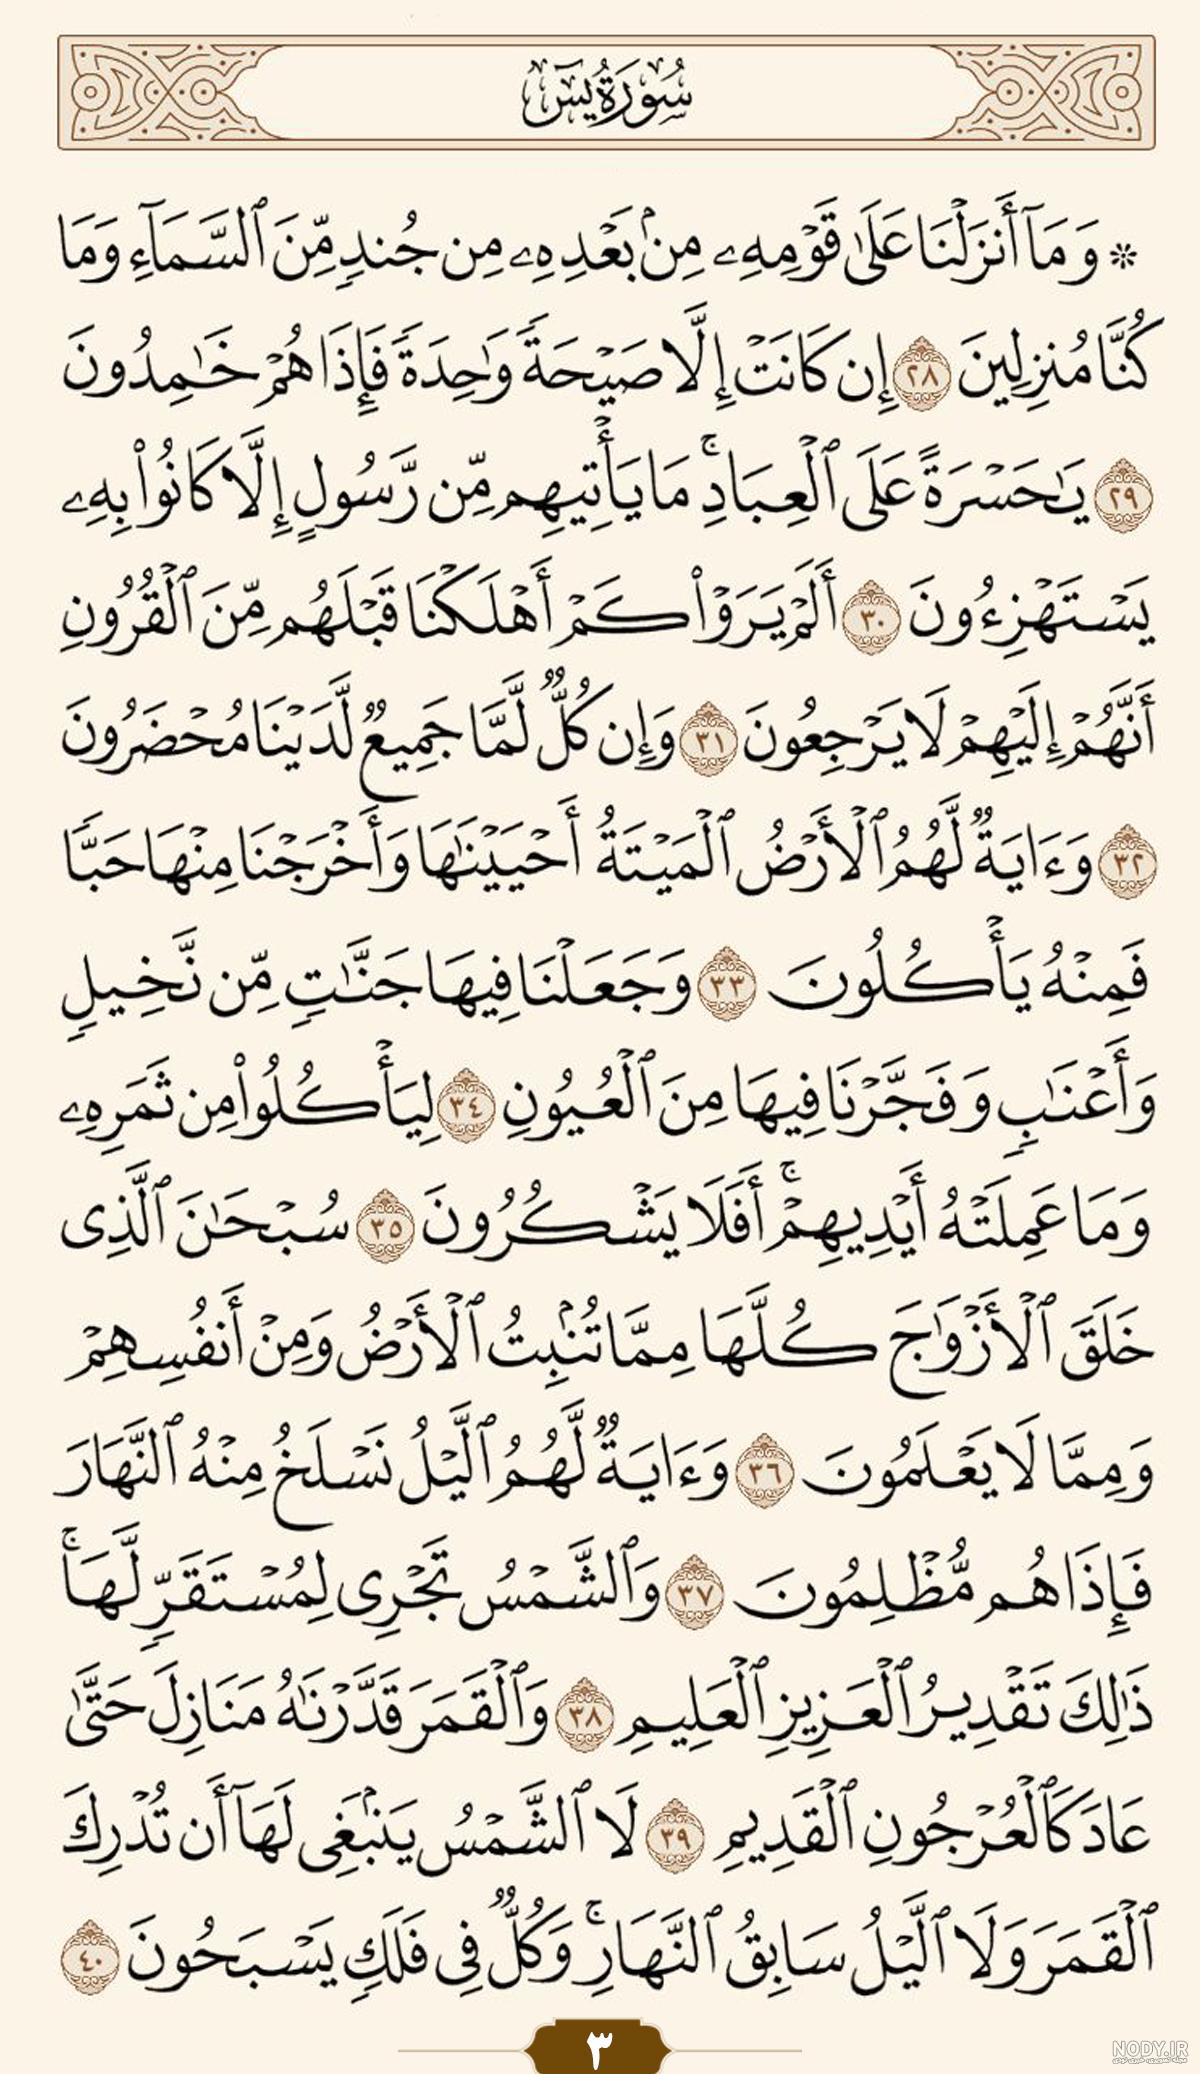 سُورَةُ يسٓ
۞ وَمَآ أَنزَلْنَا عَلَىٰ قَوْمِهِۦ مِنۢ بَعْدِهِۦ مِن جُندٍ مِّنَ ٱلسَّمَآءِ وَمَا
كُنَّا مُنزِلِينَ ٢٨ إِن كَانَتْ إِلَّا صَيْحَةً وَٰحِدَةً فَإِذَا هُمْ خَٰمِدُونَ
٢٩ يَٰحَسْرَةً عَلَى ٱلْعِبَادِ ۚ مَا يَأْتِيهِم مِّن رَّسُولٍ إِلَّا كَانُوا۟ بِهِۦ
يَسْتَهْزِءُونَ ٣٠ أَلَمْ يَرَوْا۟ كَمْ أَهْلَكْنَا قَبْلَهُم مِّنَ ٱلْقُرُونِ
أَنَّهُمْ إِلَيْهِمْ لَا يَرْجِعُونَ ٣١ وَإِن كُلٌّ لَّمَّا جَمِيعٌ لَّدَيْنَا مُحْضَرُونَ
٣٢ وَءَايَةٌ لَّهُمُ ٱلْأَرْضُ ٱلْمَيْتَةُ أَحْيَيْنَٰهَا وَأَخْرَجْنَا مِنْهَا حَبًّا
فَمِنْهُ يَأْكُلُونَ ٣٣ وَجَعَلْنَا فِيهَا جَنَّٰتٍ مِّن نَّخِيلٍ
وَأَعْنَٰبٍ وَفَجَّرْنَا فِيهَا مِنَ ٱلْعُيُونِ ٣٤ لِيَأْكُلُوا۟ مِن ثَمَرِهِۦ
وَمَا عَمِلَتْهُ أَيْدِيهِمْ ۚ أَفَلَا يَشْكُرُونَ ٣٥ سُبْحَٰنَ ٱلَّذِى
خَلَقَ ٱلْأَزْوَٰجَ كُلَّهَا مِمَّا تُنۢبِتُ ٱلْأَرْضُ وَمِنْ أَنفُسِهِمْ
وَمِمَّا لَا يَعْلَمُونَ ٣٦ وَءَايَةٌ لَّهُمُ ٱلَّيْلُ نَسْلَخُ مِنْهُ ٱلنَّهَارَ
فَإِذَا هُم مُّظْلِمُونَ ٣٧ وَٱلشَّمْسُ تَجْرِى لِمُسْتَقَرٍّ لَّهَا ۚ
ذَٰلِكَ تَقْدِيرُ ٱلْعَزِيزِ ٱلْعَلِيمِ ٣٨ وَٱلْقَمَرَ قَدَّرْنَٰهُ مَنَازِلَ حَتَّىٰ
عَادَ كَٱلْعُرْجُونِ ٱلْقَدِيمِ ٣٩ لَا ٱلشَّمْسُ يَنۢبَغِى لَهَآ أَن تُدْرِكَ
ٱلْقَمَرَ وَلَا ٱلَّيْلُ سَابِقُ ٱلنَّهَارِ ۚ وَكُلٌّ فِى فَلَكٍ يَسْبَحُونَ ٤٠
٣
NODY.IR